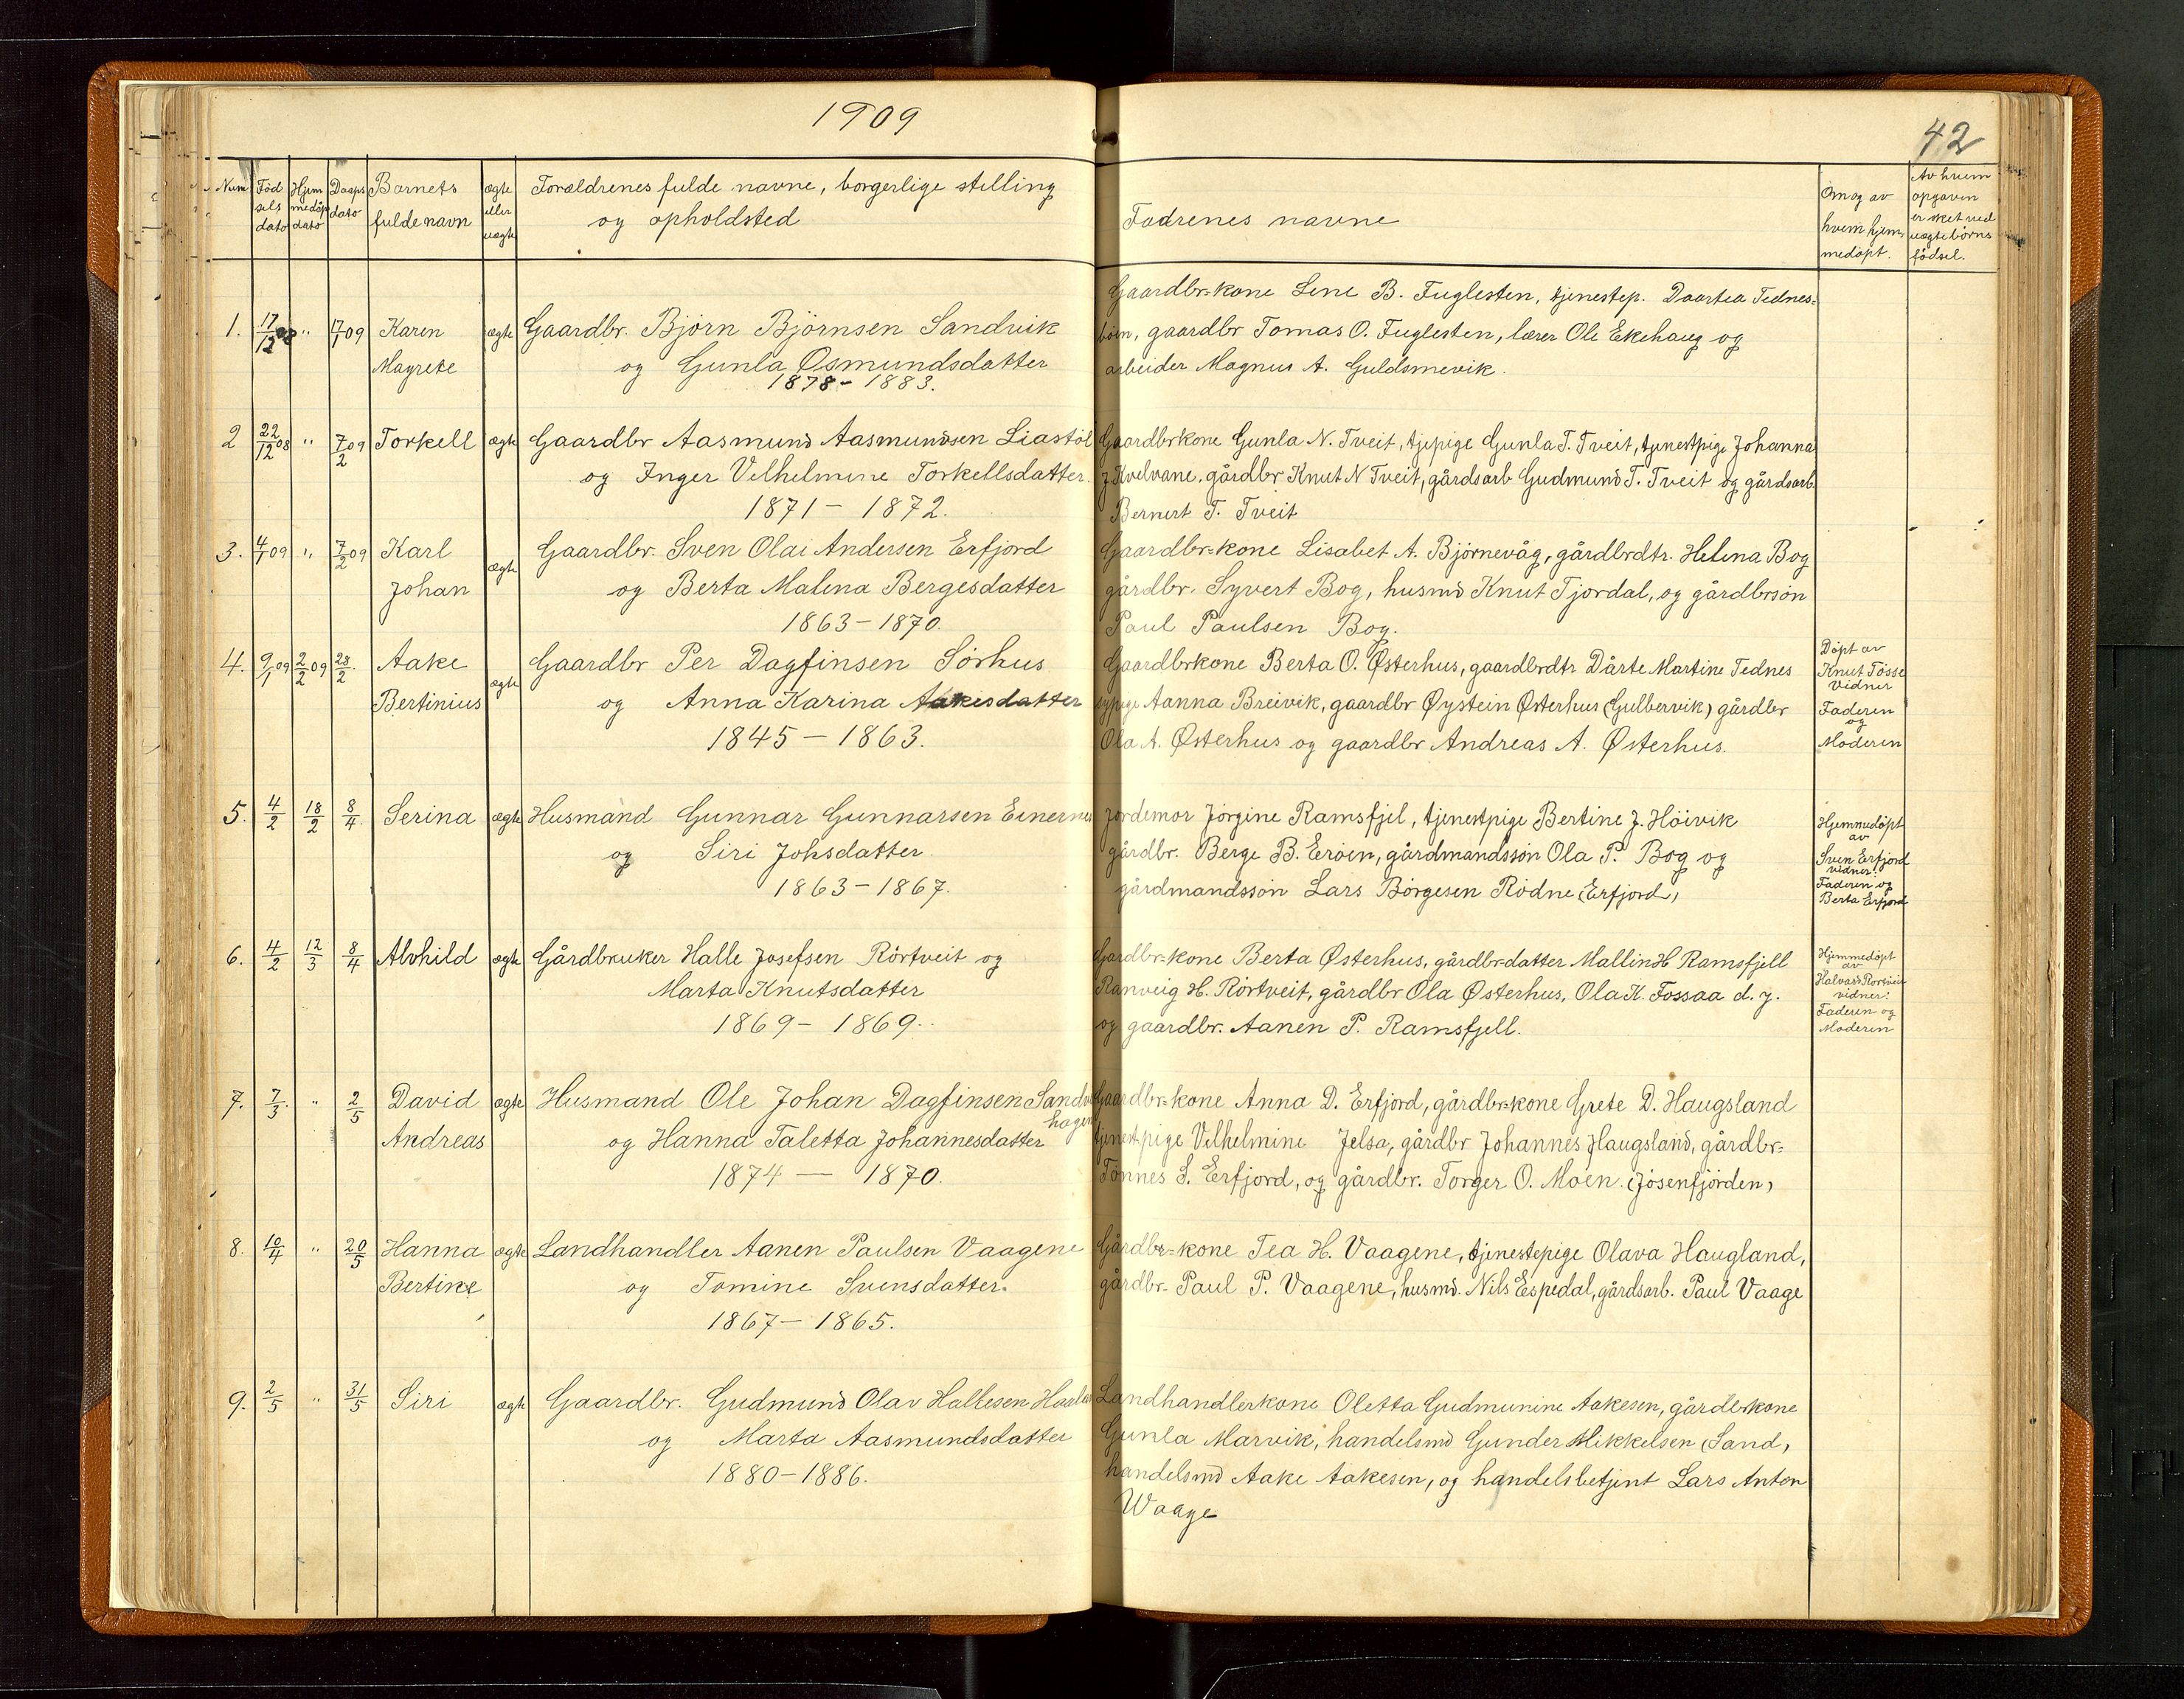 1909
42
Num
Föd
sels
dato
Hjem
medöp
dato
Daaps
dato
Barnets
fulde navn
ægte
eller
uægte
Forældrenes fulde navne, borgerlige stilling
og opholdsted
Fadrenes navne
Om og av
hvem hjem-
medöpt.
Av hvem
opgaven
er sket ved
uægte börns
födsel.
1. 17/12 08 " 17/1 09 Karen ægte Gaardbr. Björn Björnsen Sandvik
Magrete og Gunla Osmundsdatter
1878 - 1883.
Gaardbr-kone Lene B. Fuglesten, tjenestep. Daartea Tednes-
böen, gaardbr Tomas O. Fuglesten, lærer Ole Ekehaug og
arbeider Magnus A. Guldsmevik.
2 22/12 08 " 7/2 09 Torkell ægte Gaardbr Aasmund Aasmundsen Liastöl
og Inger Vilhelmine Torkellsdatter.
1871 - 1872.
Gaardbrkone Gunla N. Tveit, tjepige Gunla T. Tveit, tjenestpige Johanna
J Kvelvane, gårdbr Knut N Tveit, gårdsarb Gudmund T. Tveit og gårdsarb.
Bernert T. Tveit
3. 4/1 09 " 7/2 09 Karl ægte Gaardbr. Sven Olai Andersen Erfjord
Johan og Berta Malena Bergesdatter
1863 - 1870.
Gaardbr-kone Lisabet A. Björnevåg, gårdbrdtr. Helena Bog
gårdbr. Syvert Bog, husmd Knut Tjordal, og gårdbrsön
Paul Paulsen Bog.
4. 9/1 09 2/2 09 28/2 Aake ægte Gaardbr Per Dagfinsen Sörhus
Bertinius og Anna Karina Aakesdatter
1845 - 1863.
Gaardbrkone Berta O. Østerhus, gaardbrdtr Dårte Martine Tednes
sypige Aanna Breivik, gaardbr Øystein Østerhus (Gulbervik) gårdbr
Ola A. Østerhus og gaardbr Andreas A. Østerhus.
Döpt av
Knut Fösse
Vidner
Faderen
og
Moderen
5. 4/2 18/2 8/4 Serina ægte Husmand Gunnar Gunnarsen Einernes
og Siri Johsdatter
1863 - 1867.
Jordemor Jörgine Ramsfjel, tjenestpige Bertine J. Höivik
gårdbr. Berge B. Eröen, gårdmandssön Ola P. Bog og
gårdmandssön Lars Börgesen Rödne (Erfjord)
Hjemmedöpt
av
Sven Erfjord
vidner:
Faderen og
Berta Erfjord
6. 4/2 12/3 8/4 Alvhild ægte Gårdbruker Halle Josefsen Rörtveit og
Marta Knutsdatter
1869 - 1869.
Gardbr-kone Berta Østerhus, gårdbr-datter Mallin H Ramsfjell
Ranveig H. Rörtveit, gårdbr Ola Østerhus, Ola K. Fossaa d. y.
og gaardbr. Aanen P. Ramsfjell.
Hjemmedöpt
av
Halvard Rörtveit
vidner:
Faderen og
Moderen
7. 7/3 " 2/5 David ægte Husmand Ole Johan Dagfinsen Sandvik
hagen
Andreas og Hanna Taletta Johannesdatter
1874 — 1870.
Gaardbr-kone Anna D. Erfjord, gårdbr-kone Grete D. Haugsland
tjenestpige Vilhelmine Jelsa, gårdbr Johannes Haugsland, gårdbr-
Tönnes S. Erfjord, og gårdbr. Torger O. Moen (Jösenfjörden)
8. 10/4 " 20/5 Hanna ægte Landhandler Aanen Paulsen Vaagene
Bertine og Tomine Svensdatter.
1867 - 1865.
Gårdbr-kone Tea H. Vaagene, tjenestepige Olava Haugland,
gårdbr- Paul P. Vaagene, husmd. Nils Espedal, gårdsarb. Paul Vaage
9. 2/5 " 31/5 Siri ægte Gaardbr. Gudmund Olav Hallesen
og Marta Aasmundsdatter
1880 - 1886.
Landhandlerkone Oletta Gudmunine Aakesen, gårdbrkone
Gunla Marvik, handelsmd Gunder Mikkelsen (Sand)
handelsmd Aake Aakesen, og handelsbetjent Lars Anton
Waage